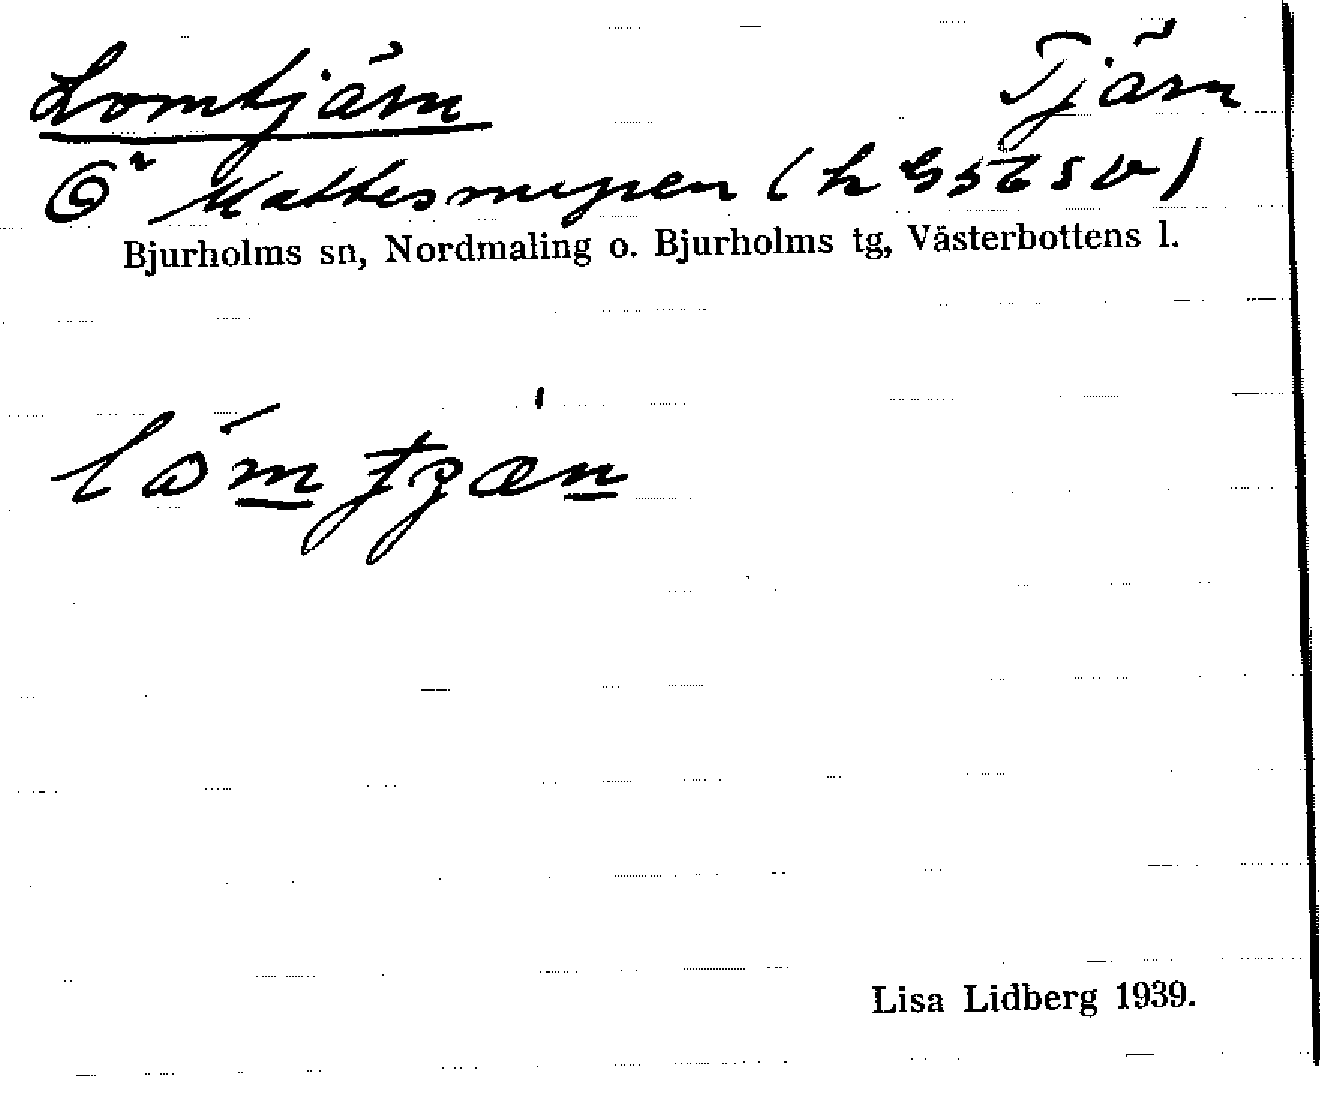 Lomtjärn Tjärn
Ö Mattesmyren
Bjurholms sn, Nordmaling o. Bjurholms tg, Västerbottens l.
Lisa Lidberg 1939.